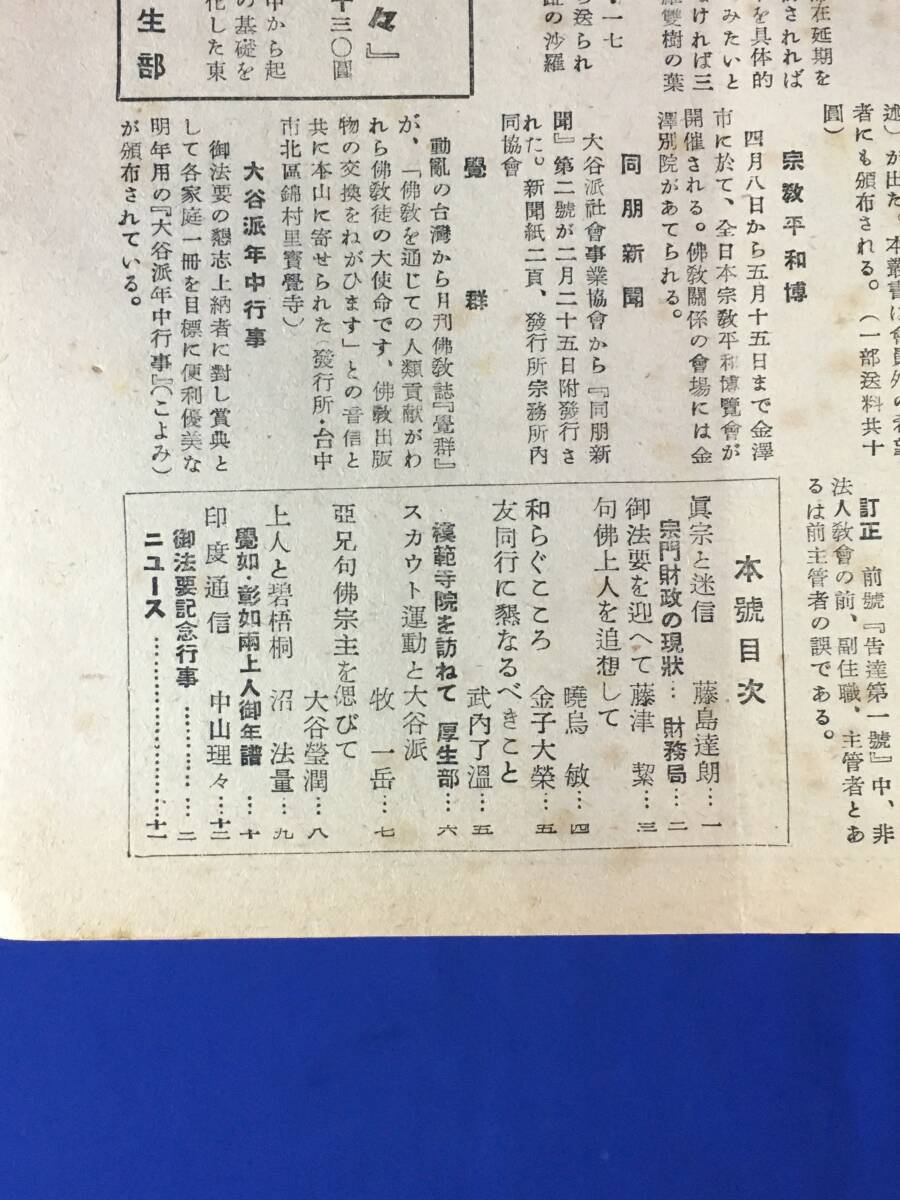 部在延期を
されれば
を具体的
みたいと
なければ三
羅雙樹の葉
・一七
ら送られ
の沙羅
々』
千三〇圓
中から起
の基礎を
化した東
生部
述）が出た。本叢書は會員外の希望
者にも頒布される。（一部送料共十
圓）
宗教平和博
四月八日から五月十五日まで金澤
市に於て、全日本宗教平和博覽會が
開催される。佛教關係の會場には金
澤別院があてられる。
同朋新聞
大谷派社會事業協會から『同朋新
聞』第二號が二月二十五日附發行さ
れた。新聞紙二頁、發行所宗務所内
同協會
覺群
動亂の台灣から月刊佛教誌『覺群』
が、「佛教を通じての人類貢献がわ
れら佛教徒の大使命です、佛教出版
物の交換をねがひます」との音信と
共に本山に寄せられた（發行所・台中
市北區錦村里寶覺寺）
大谷派年中行事
御法要の懇志上納者に對し賞典と
して各家庭一冊を目標に便利優美な
明年用の『大谷派年中行事』（こよみ）
が頒布されている。
訂正　前號『告達第一號』中、非
法人教會の前、副住職、主管者とあ
るは前主管者の誤である。
本號目次
眞宗と迷信　藤島達朗…一
宗門財政の現狀…財務局…二
御法要を迎へて　藤津　潔…三
句佛上人を追想して
曉烏　敏…四
和らぐこころ　金子大榮…五
友同行に懇なるべきこと
武内了溫…五
模範寺院を訪ねて　厚生部…六
スカウト運動と大谷派
牧　一岳…七
亞兄句佛宗主を偲びて
大谷瑩潤…八
上人と碧梧桐　沼　法量…九
覺如・彰如兩上人御年譜　…十
印度通信　中山理々…十二
御法要記念行事　……………二
ニュース　………………………十一